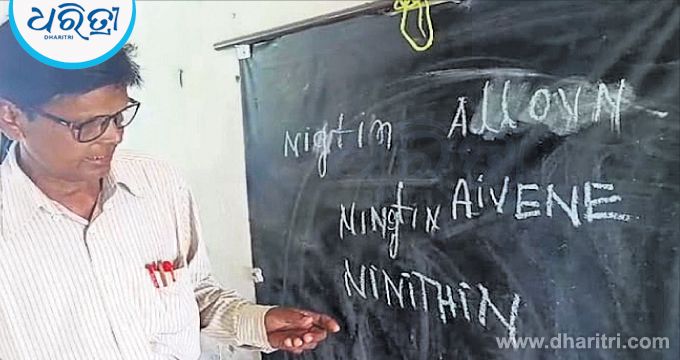 ଧରିତ୍ରୀ
DHARITRI
nigtin AllOVN
NINgtIN AiVENE
NINITHIN
www.dharitri.com